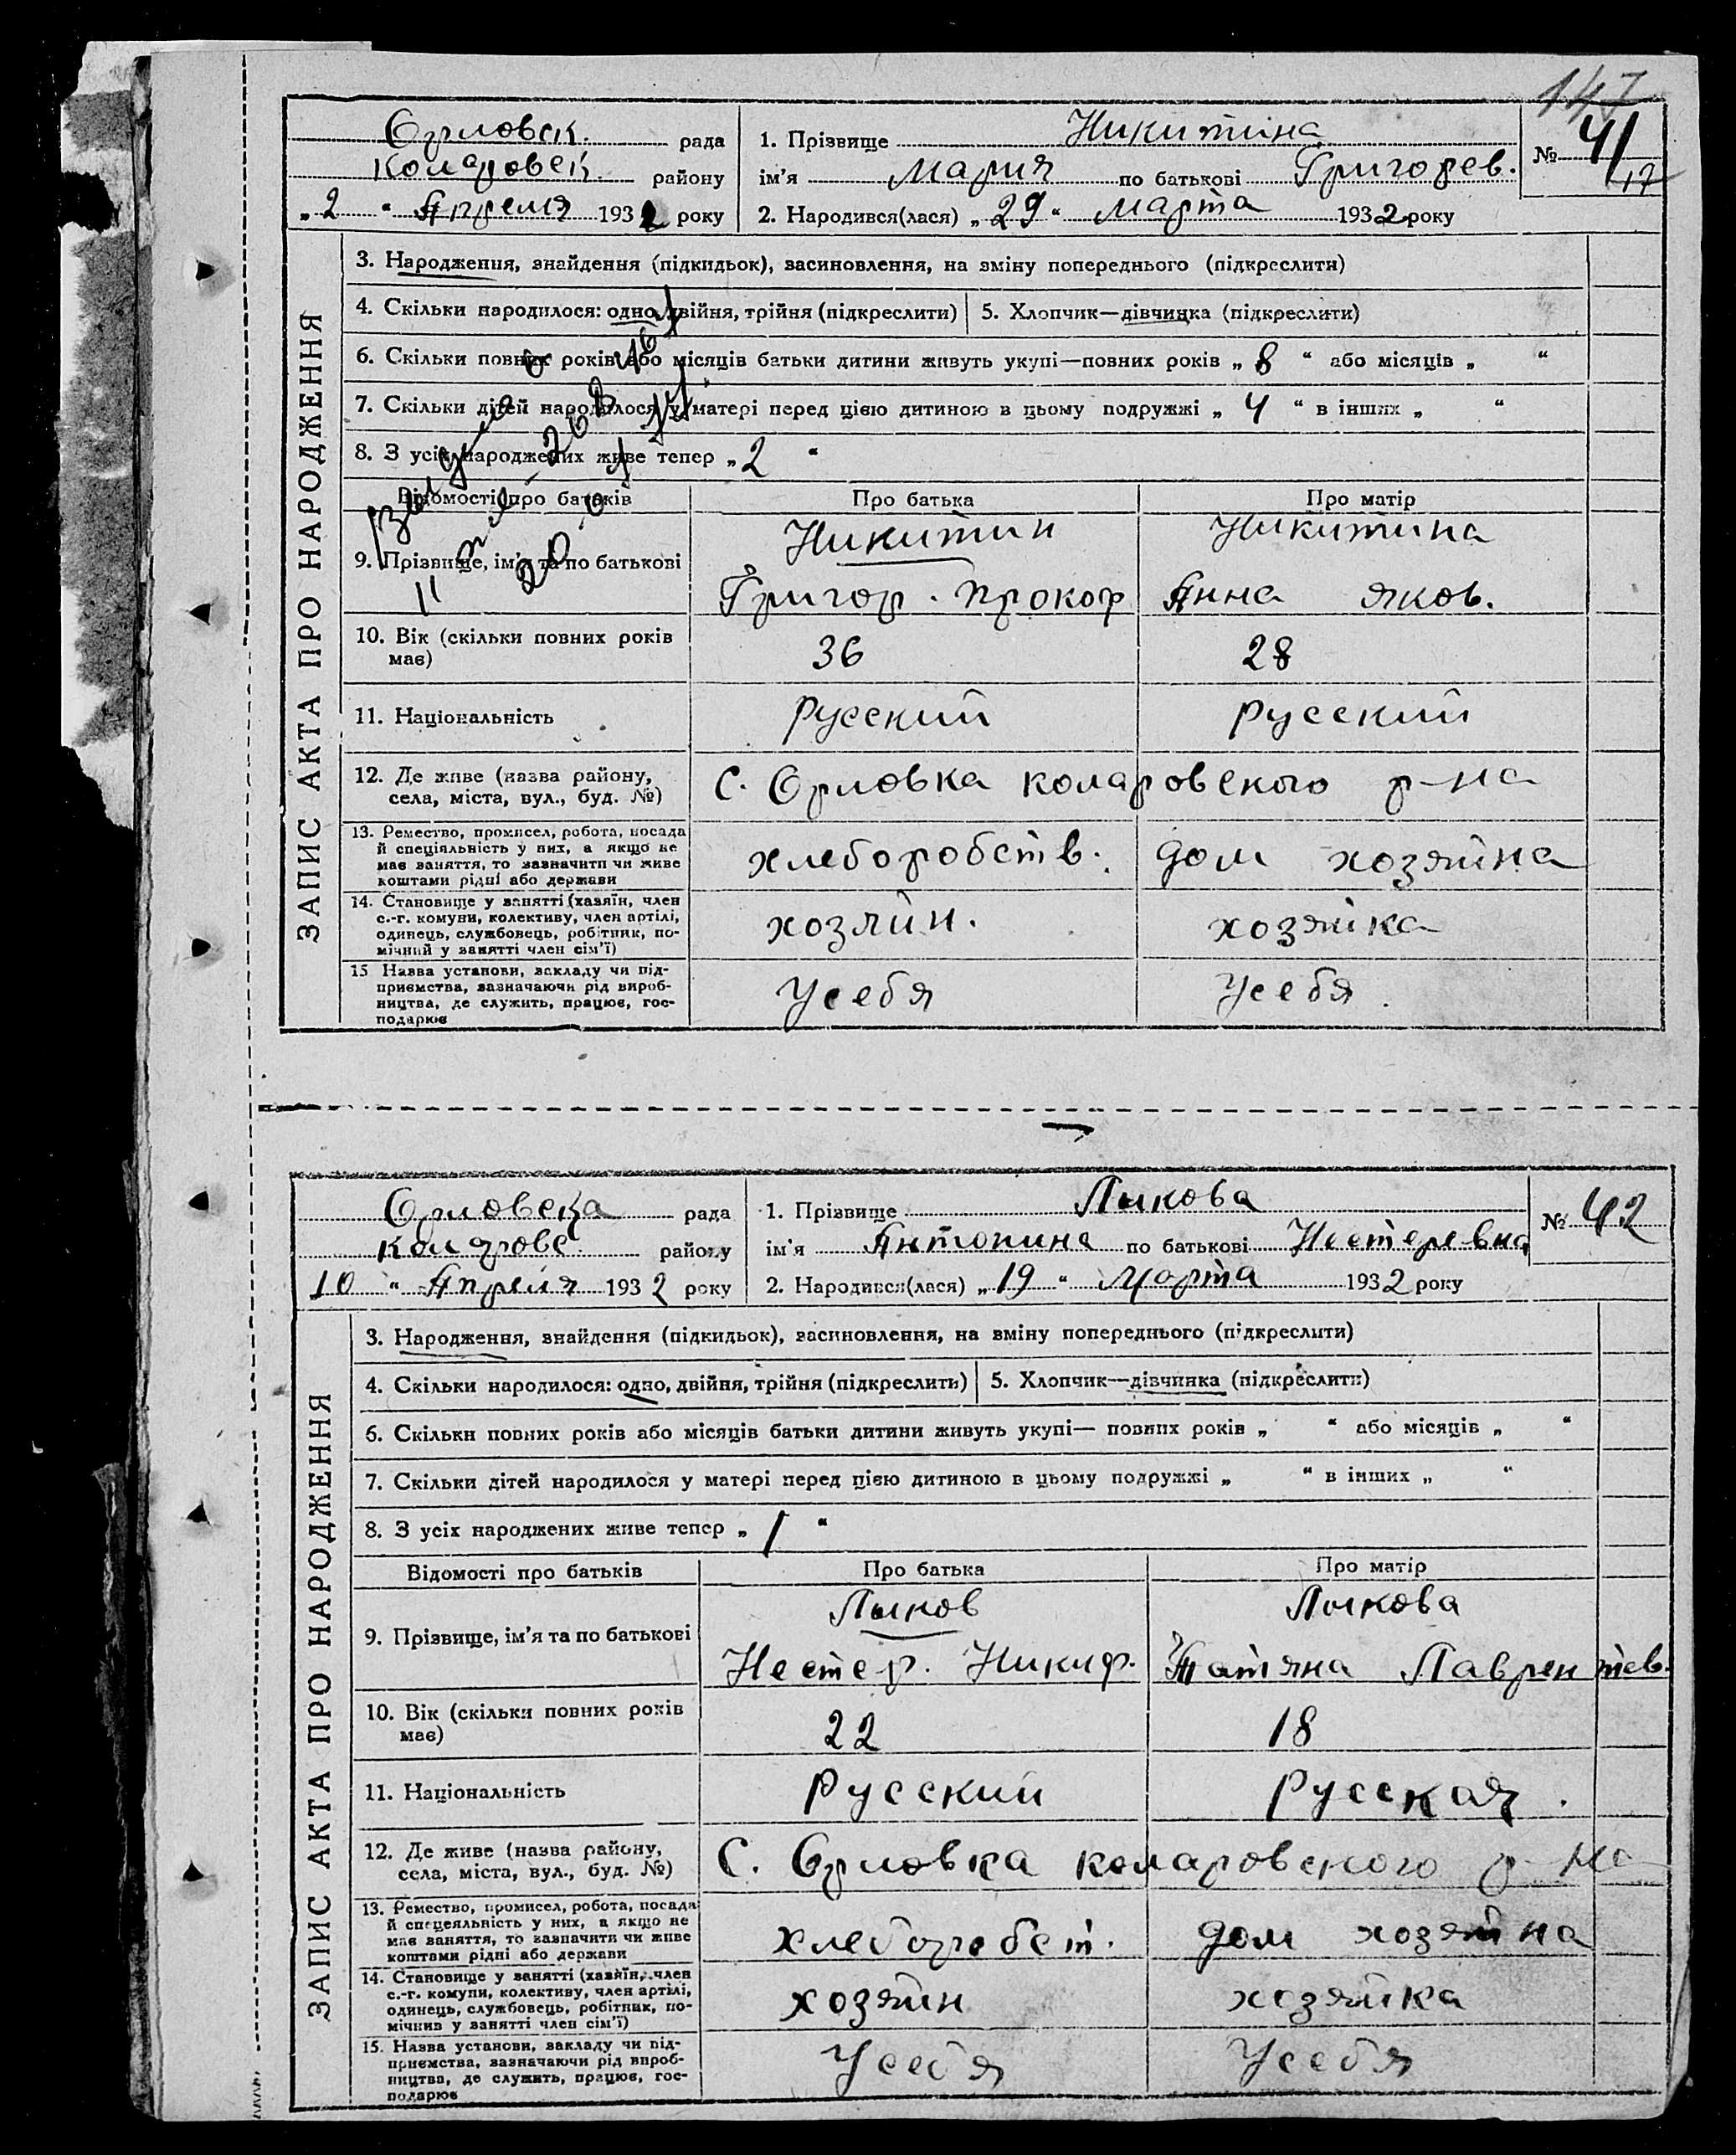 147
Орловск. рада
Коларовск. району
„2“ Апреля 1932 року
1. Прізвище Никитина
ім’я Мария по батькові Григорев.
2. Народився(лася) „29“ Марта 1932 року
№ 41
17
ЗАПИС АКТА ПРО НАРОДЖЕННЯ
3. Народження, знайдення (підкидьок), засиновлення, на зміну попереднього (підкреслити)
4. Скільки народилося: одно, двійня, трійня (підкреслити) 5. Хлопчик—дівчинка (підкреслити)
6. Скільки повних років або місяців батьки дитини живуть укупі—повних років „ 8 “ або місяців „ “
7. Скільки дітей народилося у матері перед цією дитиною в цьому подружжі „ 4 “ в інших „ “
8. З усіх народжених живе тепер „ 2 “
Відомості про батьків Про батька Про матір
9. Прізвище, ім’я та по батькові
Никитин Никитина
Григор. Прокоф Анна Яков.
10. Вік (скільки повних років
має)
36 28
11. Національність Русский Русский
12. Де живе (назва району,
села, міста, вул., буд. №)
С. Орловка коларовского р-на
13. Ремество, промисел, робота, посада
й спеціяльність у них, а якщо не
має заняття, то зазначити чи живе
коштами рідні або держави
хлеборобств. дом хозяйна
14. Становище у занятті (хазяїн, член
с.-г. комуни, колективу, член артілі,
одинець, службовець, робітник, по-
мічний у занятті член сім’ї)
хозяйн. хозяйка
15 Назва установи, закладу чи під-
приємства, зазначаючи рід вироб-
ництва, де служить, працює, гос-
подарює
Усебя Усебя.
Орловска рада
Коларовс. району
10 “ Апреля 1932 року
1. Прізвище Лыкова
ім’я Антонина по батькові Нестеревна
2. Народився(лася) „19“ Марта 1932 року
№ 42
ЗАПИС АКТА ПРО НАРОДЖЕННЯ
3. Народження, знайдення (підкидьок), засиновлення, на зміну попереднього (підкреслити)
4. Скільки народилося: одно, двійня, трійня (підкреслить) 5. Хлопчик—дівчинка (підкреслити)
6. Скільки повних років або місяців батьки дитини живуть укупі— повних років „ “ або місяців „ “
7. Скільки дітей народилося у матері перед цією дитиною в цьому подружжі „ “ в інших „ “
8. З усіх народжених живе тепер „ 1 “
Відомості про батьків Про батька Про матір
9. Прізвище, ім’я та по батькові
Лыков Лыкова
Нестер. Никиф. Татяна Лаврентев.
10. Вік (скільки повних років
має)
22 18
11. Національність Русский Русская.
12. Де живе (назва району,
села, міста, вул., буд. №)
С. Орловка коларовского р-на
13. Ремество, промисел, робота, посада
й спецеяльність у них, а якщо не
має заняття, то зазначити чи живе
коштами рідні або держави
хлеборобст. дом хозяйна
14. Становище у занятті (хазяїн, член
с.-г. комуни, колективу, член артілі,
одинець, службовець, робітник, по-
мічнив у занятті член сім’ї)
хозяйн хозяйка
15. Назва установи, закладу чи під-
приємства, зазначаючи рід вироб-
ництва, де служить, працює, гос-
подарює
Усебя Усебя